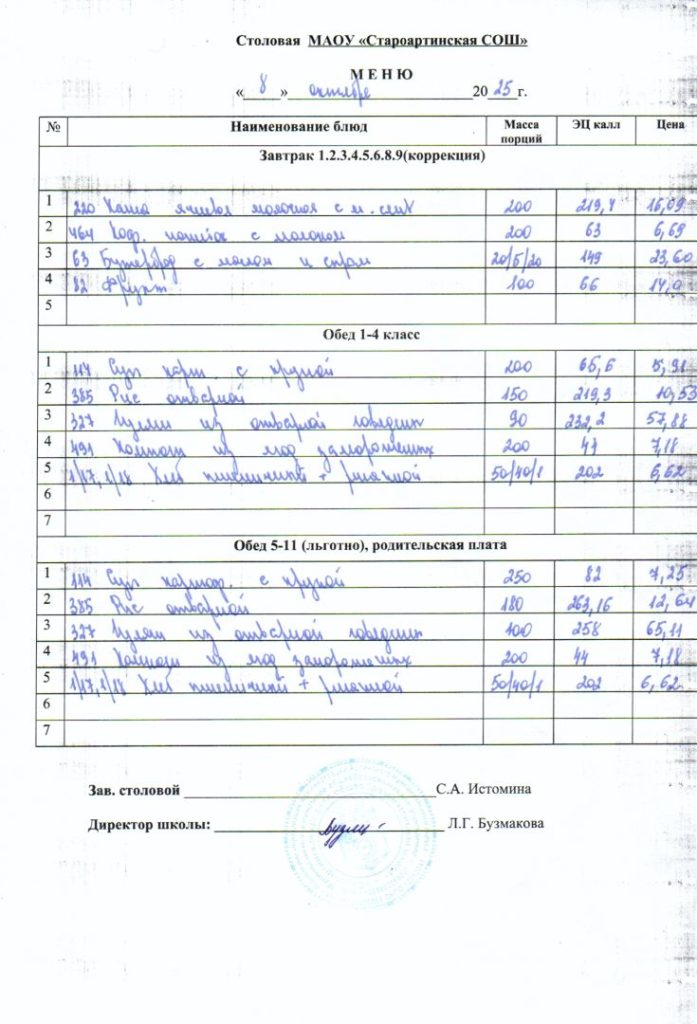 Столовая МАОУ «Староартинская СОШ»
М Е Н Ю
« 8 » октября 20 25 г.
№ Наименование блюд Масса порций ЭЦ калл Цена
Завтрак 1.2.3.4.5.6.8.9(коррекция)
1 220 Каша ячневая молочная с м. слив 200 219,4 16,09
2 464 Коф. напиток с молоком 200 63 6,69
3 63 Бутерброд с маслом и сыром 20/5/20 149 23,60
4 82 Фрукт 100 66 14,0
5
Обед 1-4 класс
1 114 Суп карт. с крупой 200 65,6 5,91
2 385 Рис отварной 150 219,3 10,53
3 327 Гуляш из отварной говядины 90 232,2 57,88
4 491 Компот из ягод замороженных 200 44 7,18
5 1/17,1/18 Хлеб пшеничный + ржаной 50/40/1 202 6,62
6
7
Обед 5-11 (льготно), родительская плата
1 114 Суп картоф. с крупой 250 82 7,25
2 385 Рис отварной 180 263,16 12,64
3 327 Гуляш из отварной говядины 100 258 65,11
4 491 Компот из ягод замороженных 200 44 7,18
5 1/17,1/18 Хлеб пшеничный + ржаной 50/40/1 202 6,62
6
7
Зав. столовой С.А. Истомина
Директор школы: Л.Г. Бузмакова